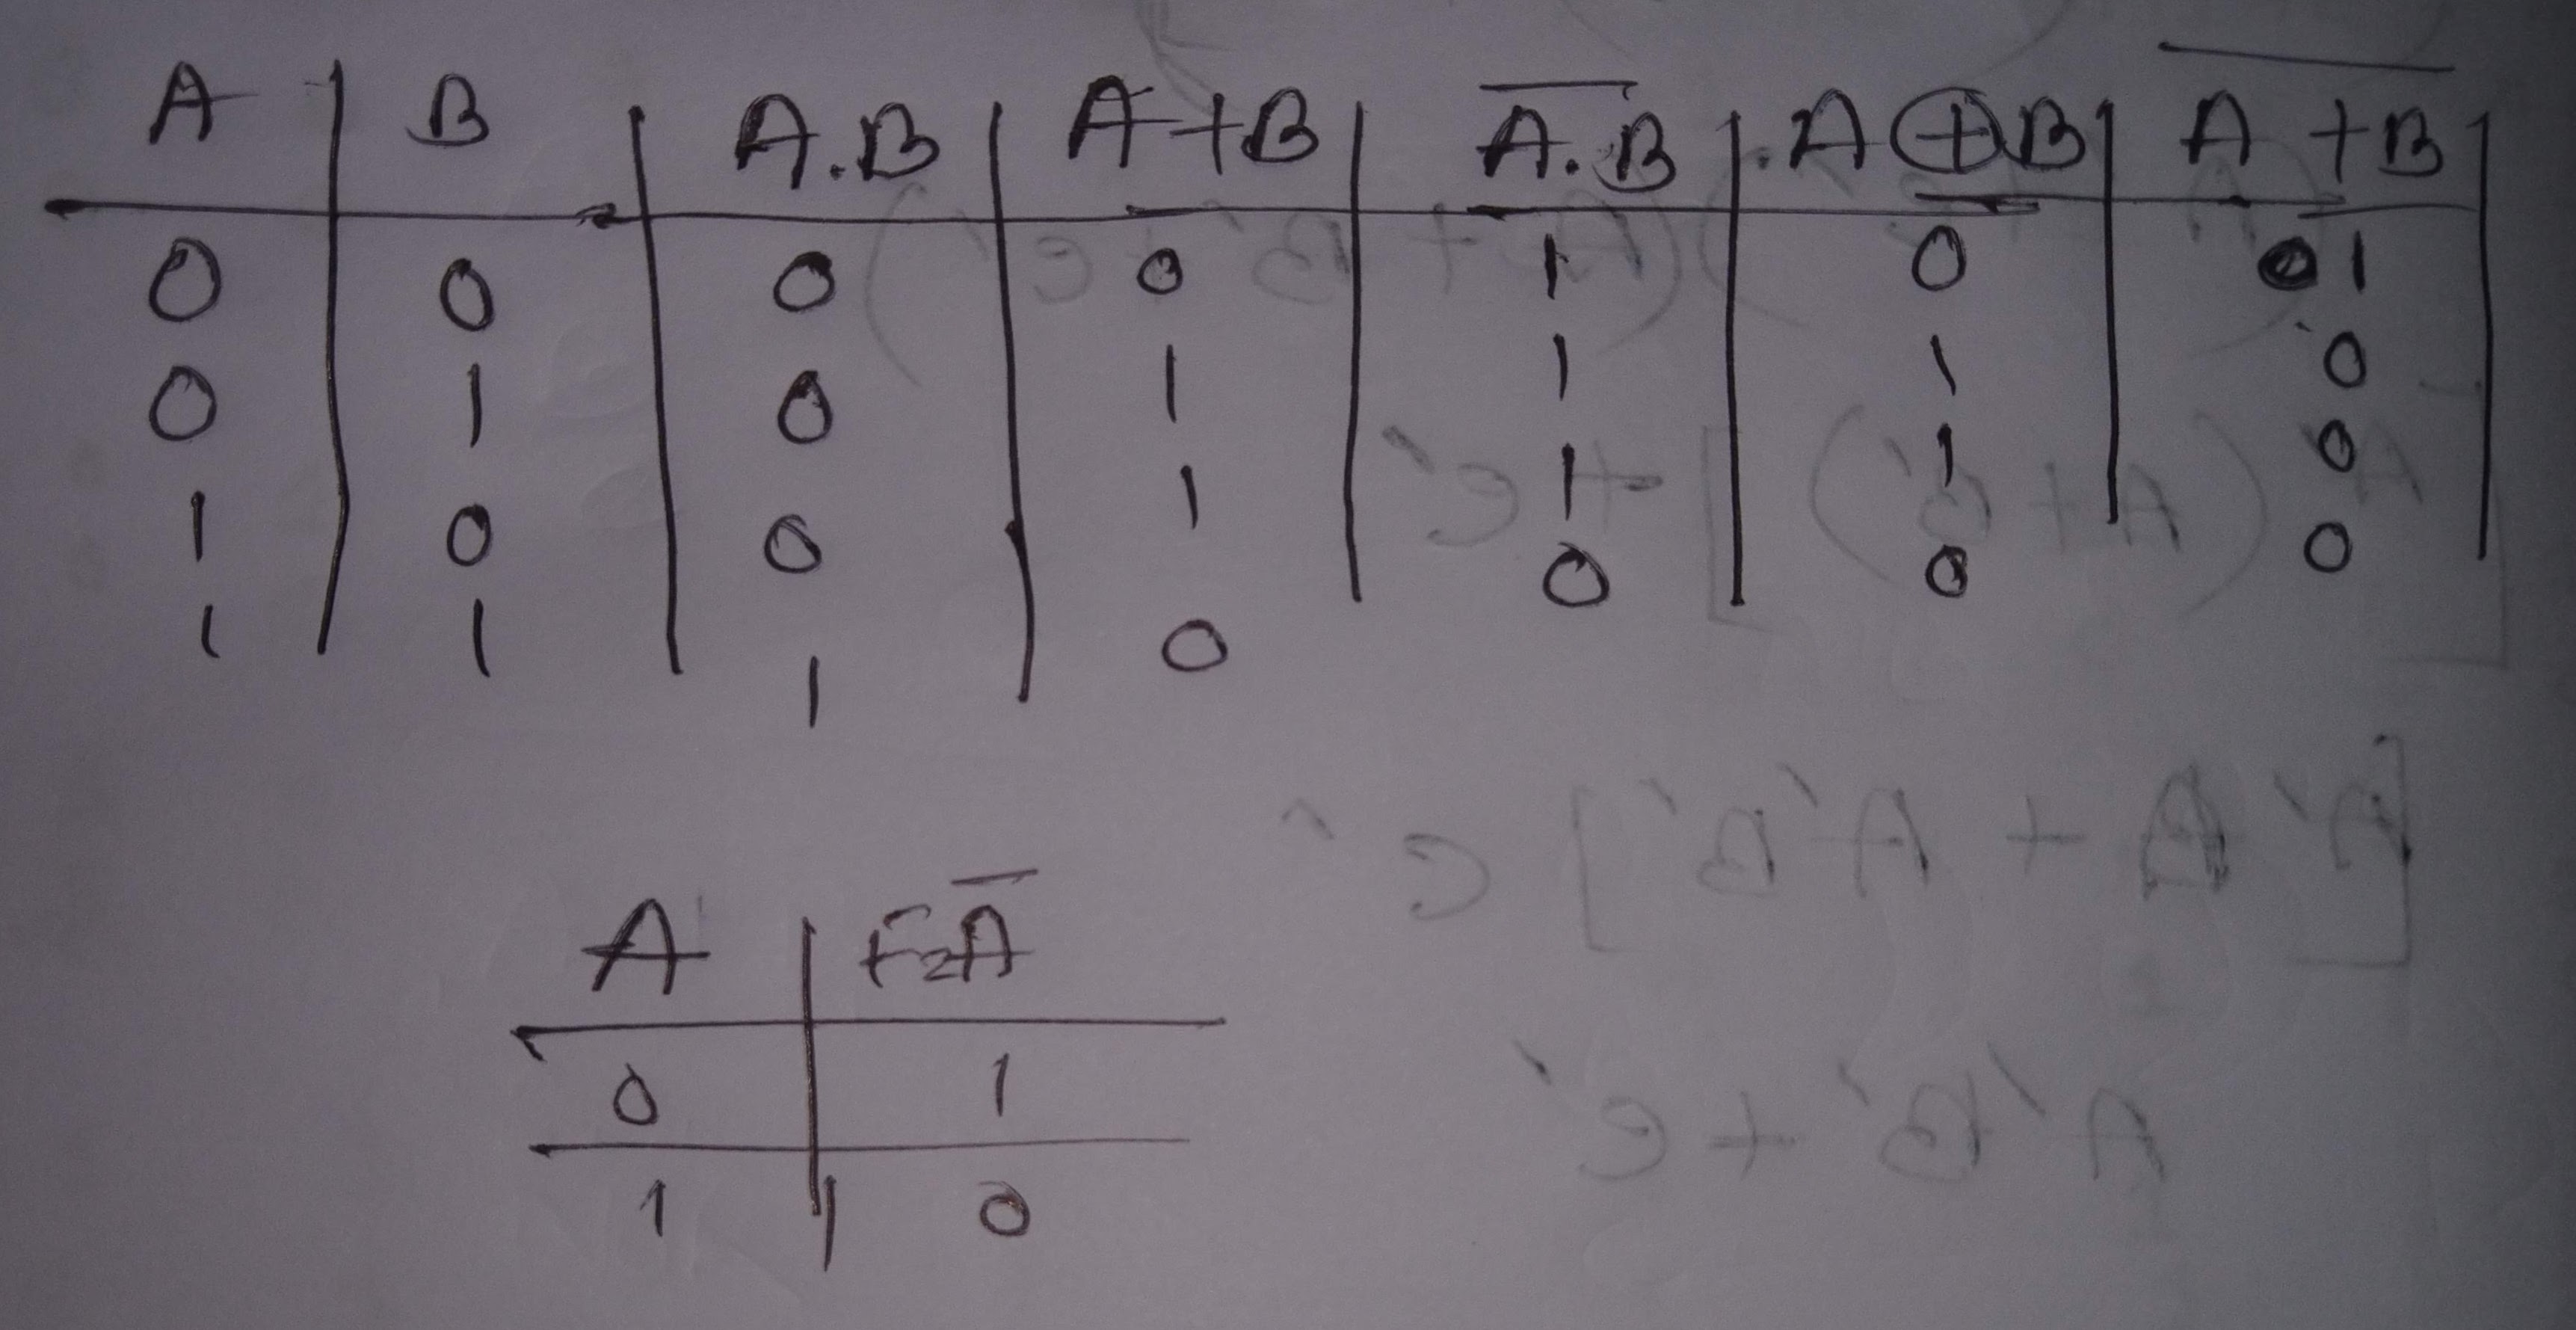 A | B | A.B | A+B | A̅.̅B̅ | A⊕B | A̅ ̅+̅B̅
0 | 0 | 0 | 0 | 1 | 0 | 1
0 | 1 | 0 | 1 | 1 | 1 | 0
1 | 0 | 0 | 1 | 1 | 1 | 0
1 | 1 | 1 | 0 | 0 | 0 | 0
A | F=A̅
0 | 1
1 | 0